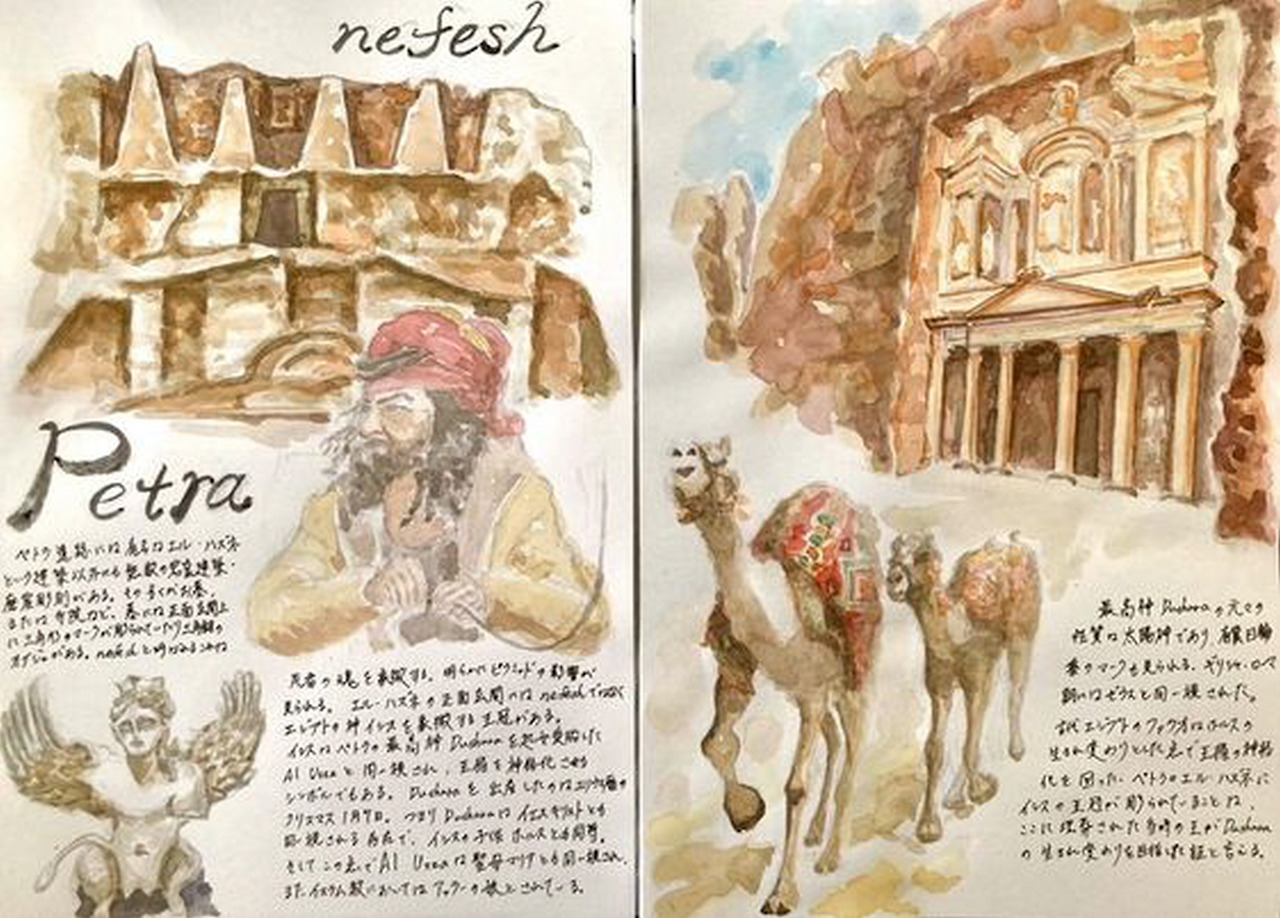 nefesh
Petra
ペトラ遺跡には有名なエル・ハズネ
という建築以外にも無数の岩窟建築・
磨崖彫刻がある。その多くがお墓、
または寺院など、墓には正面玄関上
に三角形のマークが彫られていたり三角錐の
オブジェがある。nefeshと呼ばれるこれは
死者の魂を象徴する。明らかにピラミッドの影響が
見られる。エル・ハズネの正面玄関にはnefeshではなく
エジプトの神イシスを象徴する王冠がある。
イシスはペトラの最高神Dusharaを処女受胎した
Al Uzzaと同一視され、王権を神格化させる
シンボルでもある。Dusharaを出産したのはエジプト暦の
クリスマス1月7日。つまりDusharaはイエスキリストとも
同一視される存在で、イシスの子供ホルスとも同等。
そしてこの点でAl Uzzaは聖母マリアとも同一視され、
またイスラム教においてはアッラーの娘とされている。
最高神Dusharaの元々の
性質は太陽神であり有翼日輪
のマークも見られる。ギリシャ・ローマ
期にはゼウスと同一視された。
古代エジプトのファラオはホルスの
生まれ変わりとした点で王権の神格
化を図った。ペトラのエル・ハズネに
イシスの王冠が彫られていることは、
ここに埋葬された当時の王がDushara
の生まれ変わりを目指した証と言える。